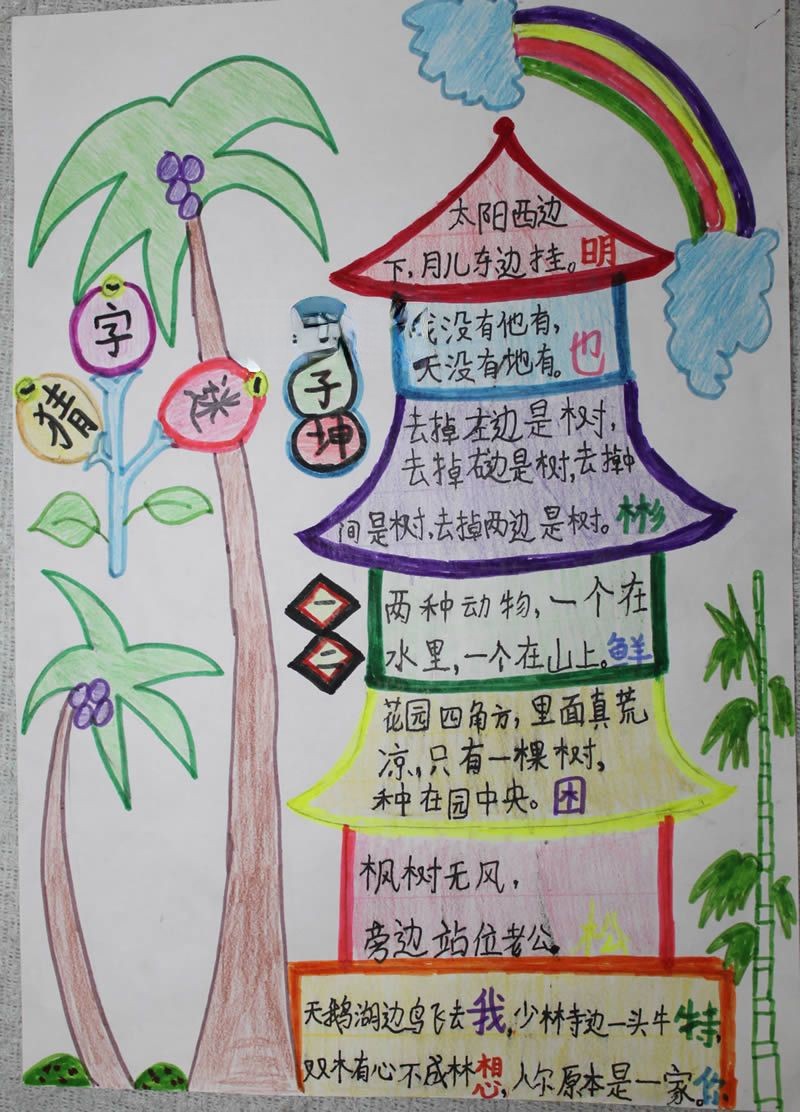 猜
字
谜
子
坤
一
二
太阳西边
下,月儿东边挂。明
没有他有,
天没有地有。也
去掉左边是树,
去掉右边是树,去掉中
间是树,去掉两边是树。彬
两种动物,一个在
水里,一个在山上。鲜
花园四角方,里面真荒
凉,只有一棵树,
种在园中央。困
枫树无风,
旁边站位老公。松
天鹅湖边鸟飞去我,少林寺边一头牛特,
双木有心不成林想,人尔原本是一家。你